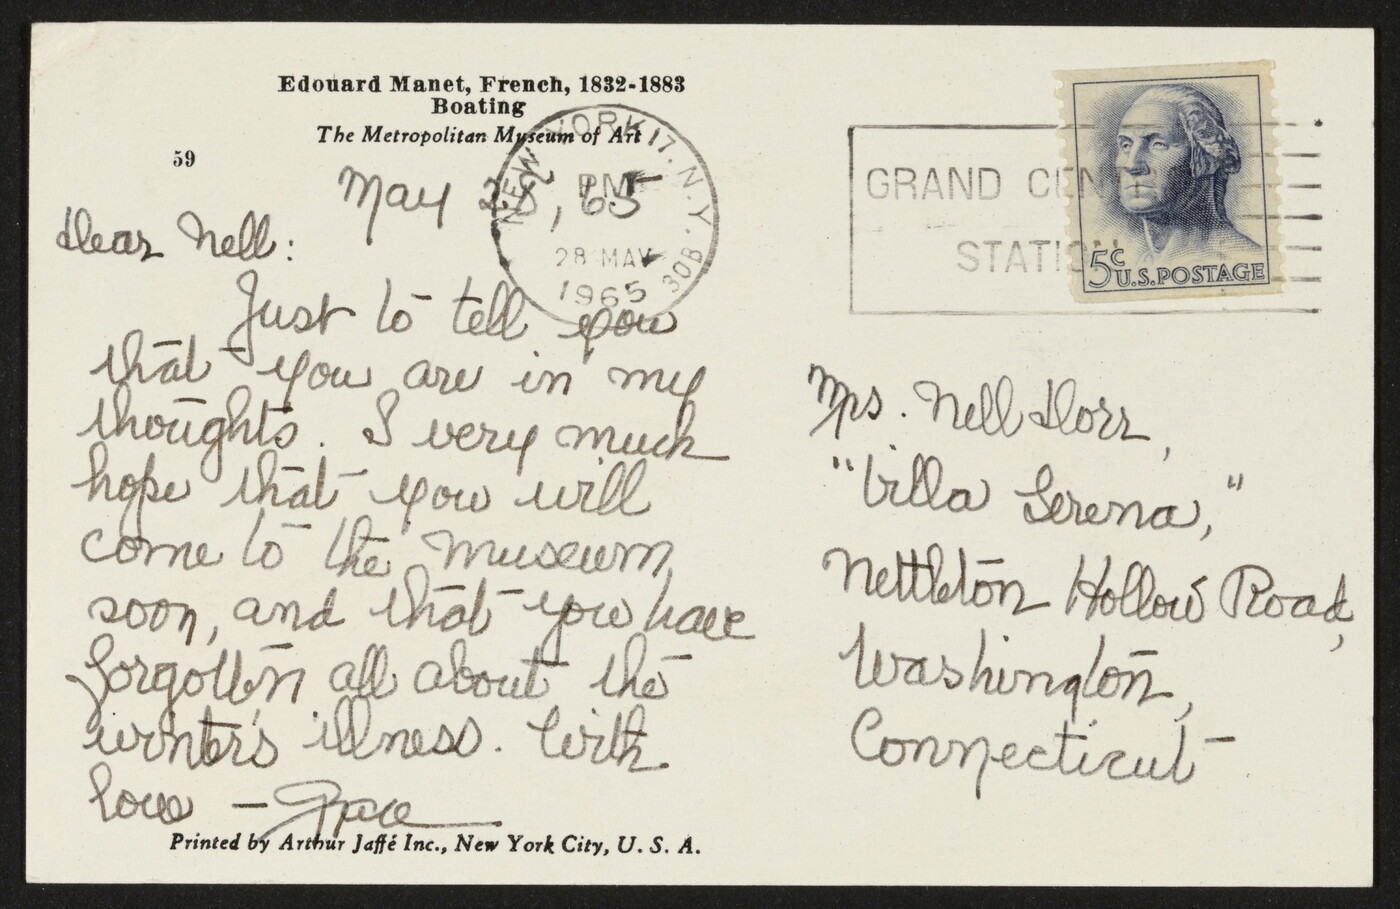 Edouard Manet, French, 1832-1883
Boating
The Metropolitan Museum of Art
59
May 28, '65
Dear Nell:
Just to tell you
that you are in my
thoughts. I very much
hope that you will
come to the Museum
soon, and that you have
forgotten all about the
winter's illness. With
love — Grace
Printed by Arthur Jaffé Inc., New York City, U. S. A.
NEW YORK 17. N.Y.
PM
28 MAY
1965
GRAND CEN
STATION
5c
U.S. POSTAGE
Mrs. Nell Dorr,
"Villa Serena,"
Nettleton Hollow Road,
Washington,
Connecticut